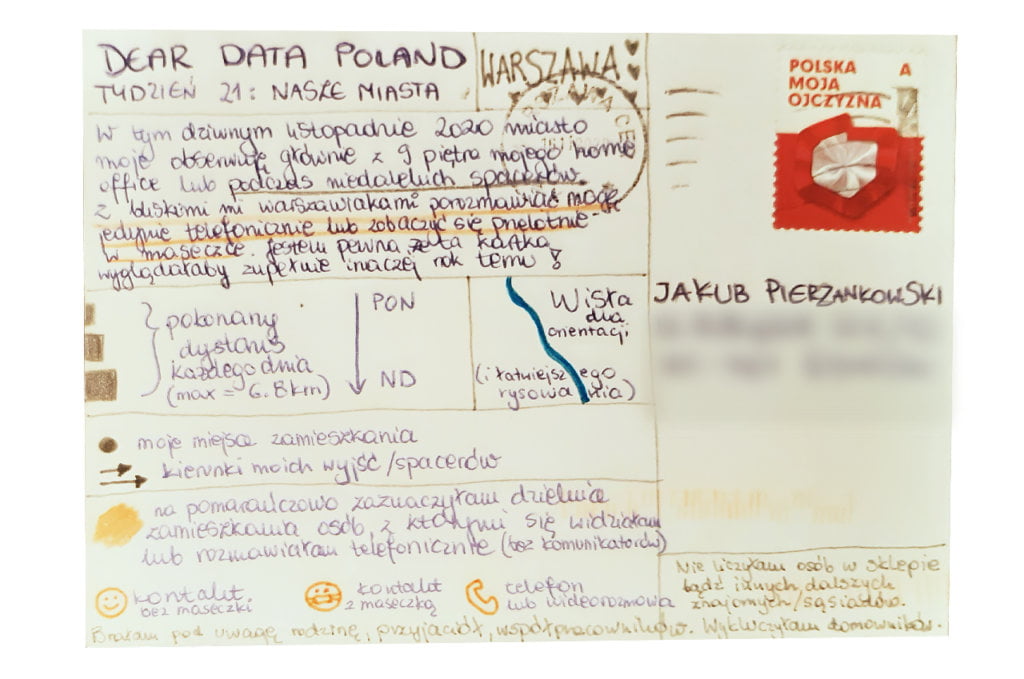 DEAR DATA POLAND
TYDZIEŃ 21: NASZE MIASTA
WARSZAWA
POLSKA A
MOJA
OJCZYZNA
W tym dziwnym listopadzie 2020 miasto
moje obserwuję głównie z 9 piętra mojego home
office lub podczas niedalekich spacerów.
Z bliskimi mi warszawiakami porozmawiać mogę
jedynie telefonicznie lub zobaczyć się przelotnie
w maseczce. Jestem pewna, że ta kartka
wyglądałaby zupełnie inaczej rok temu!
pokonany
dystans
każdego dnia
(max = 6.8km)
PON
ND
Wisła
dla
orientacji
(i łatwiejszego
rysowania)
JAKUB PIERZANKOWSKI
moje miejsce zamieszkania
kierunki moich wyjść/spacerów
na pomarańczowo zaznaczyłam dzielnie
zamieszkania osób, z którymi się widziałam
lub rozmawiałam telefonicznie (bez komunikatorów)
kontakt
bez maseczki
kontakt
z maseczką
telefon
lub wideorozmowa
Brałam pod uwagę rodzinę, przyjaciół, współpracowników. Wykluczyłam domowników.
Nie liczyłam osób w sklepie
bądź innych dalszych
znajomych/sąsiadów.